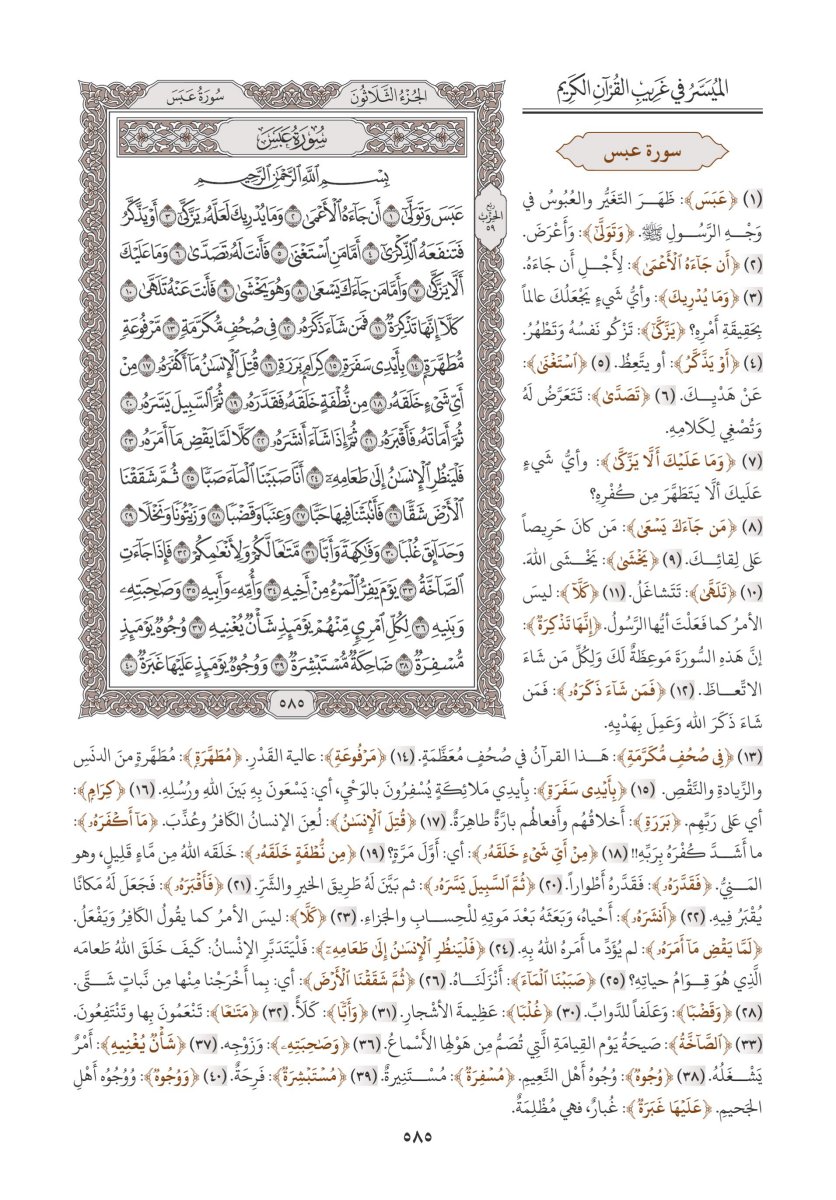 المُيَسَّرُ فِي غَرِيبِ القُرْآنِ الكَرِيمِ
سورة عبس
(١) ﴿عَبَسَ﴾: ظَهَرَ التَغيُّر والعُبُوسُ في
وَجْهِ الرَّسُولِ ﷺ. ﴿وَتَوَلَّىٰٓ﴾: وَأَعْرَضَ.
(٢) ﴿أَن جَآءَهُ ٱلۡأَعۡمَىٰ﴾: لِأَجْلِ أَن جَاءَهُ.
(٣) ﴿وَمَا يُدۡرِيكَ﴾: وأيُّ شَيءٍ يَجْعَلُكَ عالماً
بِحَقِيقَةِ أَمْرِهِ؟ ﴿يَزَّكَّىٰٓ﴾: تَزْكُو نَفسُهُ وَتَطْهُر.
(٤) ﴿أَوۡ يَذَّكَّرُ﴾: أو يتَّعِظُ. (٥) ﴿ٱسۡتَغۡنَىٰ﴾:
عَنْ هَدْيِكَ. (٦) ﴿تَصَدَّىٰ﴾: تَتَعَرَّضُ لَهُ
وَتُصْغِي لِكَلامِهِ.
(٧) ﴿وَمَا عَلَيۡكَ أَلَّا يَزَّكَّىٰ﴾: وأيُّ شَيءٍ
عَلَيكَ ألَّا يَتَطَهَّرَ مِن كُفْرِهِ؟
(٨) ﴿مَن جَآءَكَ يَسۡعَىٰ﴾: مَن كانَ حَرِيصاً
عَلى لِقائِكَ. (٩) ﴿يَخۡشَىٰ﴾: يَخْشَى اللهَ.
(١٠) ﴿تَلَهَّىٰ﴾: تَتَشاغَلُ. (١١) ﴿كَلَّآ﴾: ليسَ
الأمرُ كما فَعَلْتَ أيُّها الرَّسُولُ. ﴿إِنَّهَا تَذۡكِرَةٞ﴾:
إنَّ هَذِهِ السُّورَةَ مَوعِظَةٌ لَكَ وَلِكُلِّ مَن شَاءَ
الاتِّعاظَ. (١٢) ﴿فَمَن شَآءَ ذَكَرَهُۥ﴾: فَمَن
شَاءَ ذَكَرَ الله وَعَمِلَ بِهَدْيِهِ.
الجُزْءُ الثَّلَاثُونَ
سُورَةُ عَبَسَ
سُورَةُ عَبَسَ
بِسۡمِ ٱللَّهِ ٱلرَّحۡمَٰنِ ٱلرَّحِيمِ
عَبَسَ وَتَوَلَّىٰٓ ١ أَن جَآءَهُ ٱلۡأَعۡمَىٰ ٢ وَمَا يُدۡرِيكَ لَعَلَّهُۥ يَزَّكَّىٰٓ ٣ أَوۡ يَذَّكَّرُ
فَتَنفَعَهُ ٱلذِّكۡرَىٰٓ ٤ أَمَّا مَنِ ٱسۡتَغۡنَىٰ ٥ فَأَنتَ لَهُۥ تَصَدَّىٰ ٦ وَمَا عَلَيۡكَ
أَلَّا يَزَّكَّىٰ ٧ وَأَمَّا مَن جَآءَكَ يَسۡعَىٰ ٨ وَهُوَ يَخۡشَىٰ ٩ فَأَنتَ عَنۡهُ تَلَهَّىٰ ١٠
كَلَّآ إِنَّهَا تَذۡكِرَةٞ ١١ فَمَن شَآءَ ذَكَرَهُۥ ١٢ فِي صُحُفٖ مُّكَرَّمَةٖ ١٣ مَّرۡفُوعَةٖ
مُّطَهَّرَةِۭ ١٤ بِأَيۡدِي سَفَرَةٖ ١٥ كِرَامِۭ بَرَرَةٖ ١٦ قُتِلَ ٱلۡإِنسَٰنُ مَآ أَكۡفَرَهُۥ ١٧ مِنۡ
أَيِّ شَيۡءٍ خَلَقَهُۥ ١٨ مِن نُّطۡفَةٍ خَلَقَهُۥ فَقَدَّرَهُۥ ١٩ ثُمَّ ٱلسَّبِيلَ يَسَّرَهُۥ ٢٠
ثُمَّ أَمَاتَهُۥ فَأَقۡبَرَهُۥ ٢١ ثُمَّ إِذَا شَآءَ أَنشَرَهُۥ ٢٢ كَلَّا لَمَّا يَقۡضِ مَآ أَمَرَهُۥ ٢٣
فَلۡيَنظُرِ ٱلۡإِنسَٰنُ إِلَىٰ طَعَامِهِۦٓ ٢٤ أَنَّا صَبَبۡنَا ٱلۡمَآءَ صَبّٗا ٢٥ ثُمَّ شَقَقۡنَا
ٱلۡأَرۡضَ شَقّٗا ٢٦ فَأَنۢبَتۡنَا فِيهَا حَبّٗا ٢٧ وَعِنَبٗا وَقَضۡبٗا ٢٨ وَزَيۡتُونٗا وَنَخۡلٗا ٢٩
وَحَدَآئِقَ غُلۡبٗا ٣٠ وَفَٰكِهَةٗ وَأَبّٗا ٣١ مَّتَٰعٗا لَّكُمۡ وَلِأَنۡعَٰمِكُمۡ ٣٢ فَإِذَا جَآءَتِ
ٱلصَّآخَّةُ ٣٣ يَوۡمَ يَفِرُّ ٱلۡمَرۡءُ مِنۡ أَخِيهِ ٣٤ وَأُمِّهِۦ وَأَبِيهِ ٣٥ وَصَٰحِبَتِهِۦ
وَبَنِيهِ ٣٦ لِكُلِّ ٱمۡرِيٕٖ مِّنۡهُمۡ يَوۡمَئِذٖ شَأۡنٞ يُغۡنِيهِ ٣٧ وُجُوهٞ يَوۡمَئِذٖ
مُّسۡفِرَةٞ ٣٨ ضَاحِكَةٞ مُّسۡتَبۡشِرَةٞ ٣٩ وَوُجُوهٞ يَوۡمَئِذٍ عَلَيۡهَا غَبَرَةٞ ٤٠
ربع
الحزب
٥٩
٥٨٥
(١٣) ﴿فِي صُحُفٖ مُّكَرَّمَةٖ﴾: هَذا القرآنُ في صُحُفٍ مُعَظَّمَةٍ. (١٤) ﴿مَّرۡفُوعَةٖ﴾: عالية القَدْرِ. ﴿مُّطَهَّرَةِۭ﴾: مُطَهَّرةٍ منَ الدنَسِ
والزِّيادةِ والنَّقْصِ. (١٥) ﴿بِأَيۡدِي سَفَرَةٖ﴾: بِأيدِي مَلائِكَةٍ يُسْفِرُونَ بالوَحْيِ، أي: يَسْعَونَ بِهِ بَينَ اللهِ ورُسُلِهِ. (١٦) ﴿كِرَامِۭ﴾:
أي عَلى رَبِّهِم. ﴿بَرَرَةٖ﴾: أَخلاقُهُم وأَفعالُهُم بارَّةٌ طاهِرَةٌ. (١٧) ﴿قُتِلَ ٱلۡإِنسَٰنُ﴾: لُعِنَ الإنسانُ الكَافرُ وعُذِّبَ. ﴿مَآ أَكۡفَرَهُۥ﴾:
ما أَشَدَّ كُفْرَهُ بِرَبِّهِ!! (١٨) ﴿مِنۡ أَيِّ شَيۡءٍ خَلَقَهُۥ﴾: أي: أَوَّلَ مَرَّةٍ؟ (١٩) ﴿مِن نُّطۡفَةٍ خَلَقَهُۥ﴾: خَلَقَه اللهُ مِن مَّاءٍ قَلِيلٍ، وهو
المَنِيُّ. ﴿فَقَدَّرَهُۥ﴾: فَقَدَّرَهُ أَطْواراً. (٢٠) ﴿ثُمَّ ٱلسَّبِيلَ يَسَّرَهُۥ﴾: ثم بَيَّنَ لَهُ طَرِيقَ الخيرِ والشَّرِّ. (٢١) ﴿فَأَقۡبَرَهُۥ﴾: فَجَعَلَ لَهُ مَكانًا
يُقْبَرُ فِيهِ. (٢٢) ﴿أَنشَرَهُۥ﴾: أَحْياهُ، وَبَعَثَهُ بَعْدَ مَوتِهِ للْحِسابِ والجَزاءِ. (٢٣) ﴿كَلَّا﴾: ليسَ الأمرُ كما يقُولُ الكَافِرُ وَيَفْعَلُ.
﴿لَمَّا يَقۡضِ مَآ أَمَرَهُۥ﴾: لم يُؤَدِّ ما أَمَرَهُ اللهُ بِهِ. (٢٤) ﴿فَلۡيَنظُرِ ٱلۡإِنسَٰنُ إِلَىٰ طَعَامِهِۦٓ﴾: فَلْيَتَدَبَّرِ الإنْسَانُ: كَيفَ خَلَقَ اللهُ طَعامَه
الَّذِي هُوَ قِوَامُ حياتِهِ؟ (٢٥) ﴿صَبَبۡنَا ٱلۡمَآءَ﴾: أَنْزَلْنَاهُ. (٢٦) ﴿ثُمَّ شَقَقۡنَا ٱلۡأَرۡضَ﴾: أي: بِما أَخْرَجْنا مِنْها مِن نَّباتٍ شَتَّى.
(٢٨) ﴿وَقَضۡبٗا﴾: وَعَلَفاً للدَّوابِّ. (٣٠) ﴿غُلۡبٗا﴾: عَظِيمَةَ الأشْجارِ. (٣١) ﴿وَأَبّٗا﴾: كَلَأً. (٣٢) ﴿مَّتَٰعٗا﴾: تَنْعَمُونَ بِها وتَنْتَفِعُونَ.
(٣٣) ﴿ٱلصَّآخَّةُ﴾: صَيحَةُ يَوْمِ القِيامَةِ الَّتي تُصَمُّ مِن هَوْلِها الأَسْماعُ. (٣٦) ﴿وَصَٰحِبَتِهِۦ﴾: وَزَوْجِه. (٣٧) ﴿شَأۡنٞ يُغۡنِيهِ﴾: أَمْرٌ
يَشْغَلُهُ. (٣٨) ﴿وُجُوهٞ﴾: وُجُوهُ أَهْلِ النَّعِيمِ. ﴿مُّسۡفِرَةٞ﴾: مُسْتَنِيرةٌ. (٣٩) ﴿مُّسۡتَبۡشِرَةٞ﴾: فَرِحَةٌ. (٤٠) ﴿وَوُجُوهٞ﴾: وَوُجُوهُ أَهْلِ
الجَحيمِ. ﴿عَلَيۡهَا غَبَرَةٞ﴾: غُبارٌ، فهي مُظْلِمَةٌ.
٥٨٥